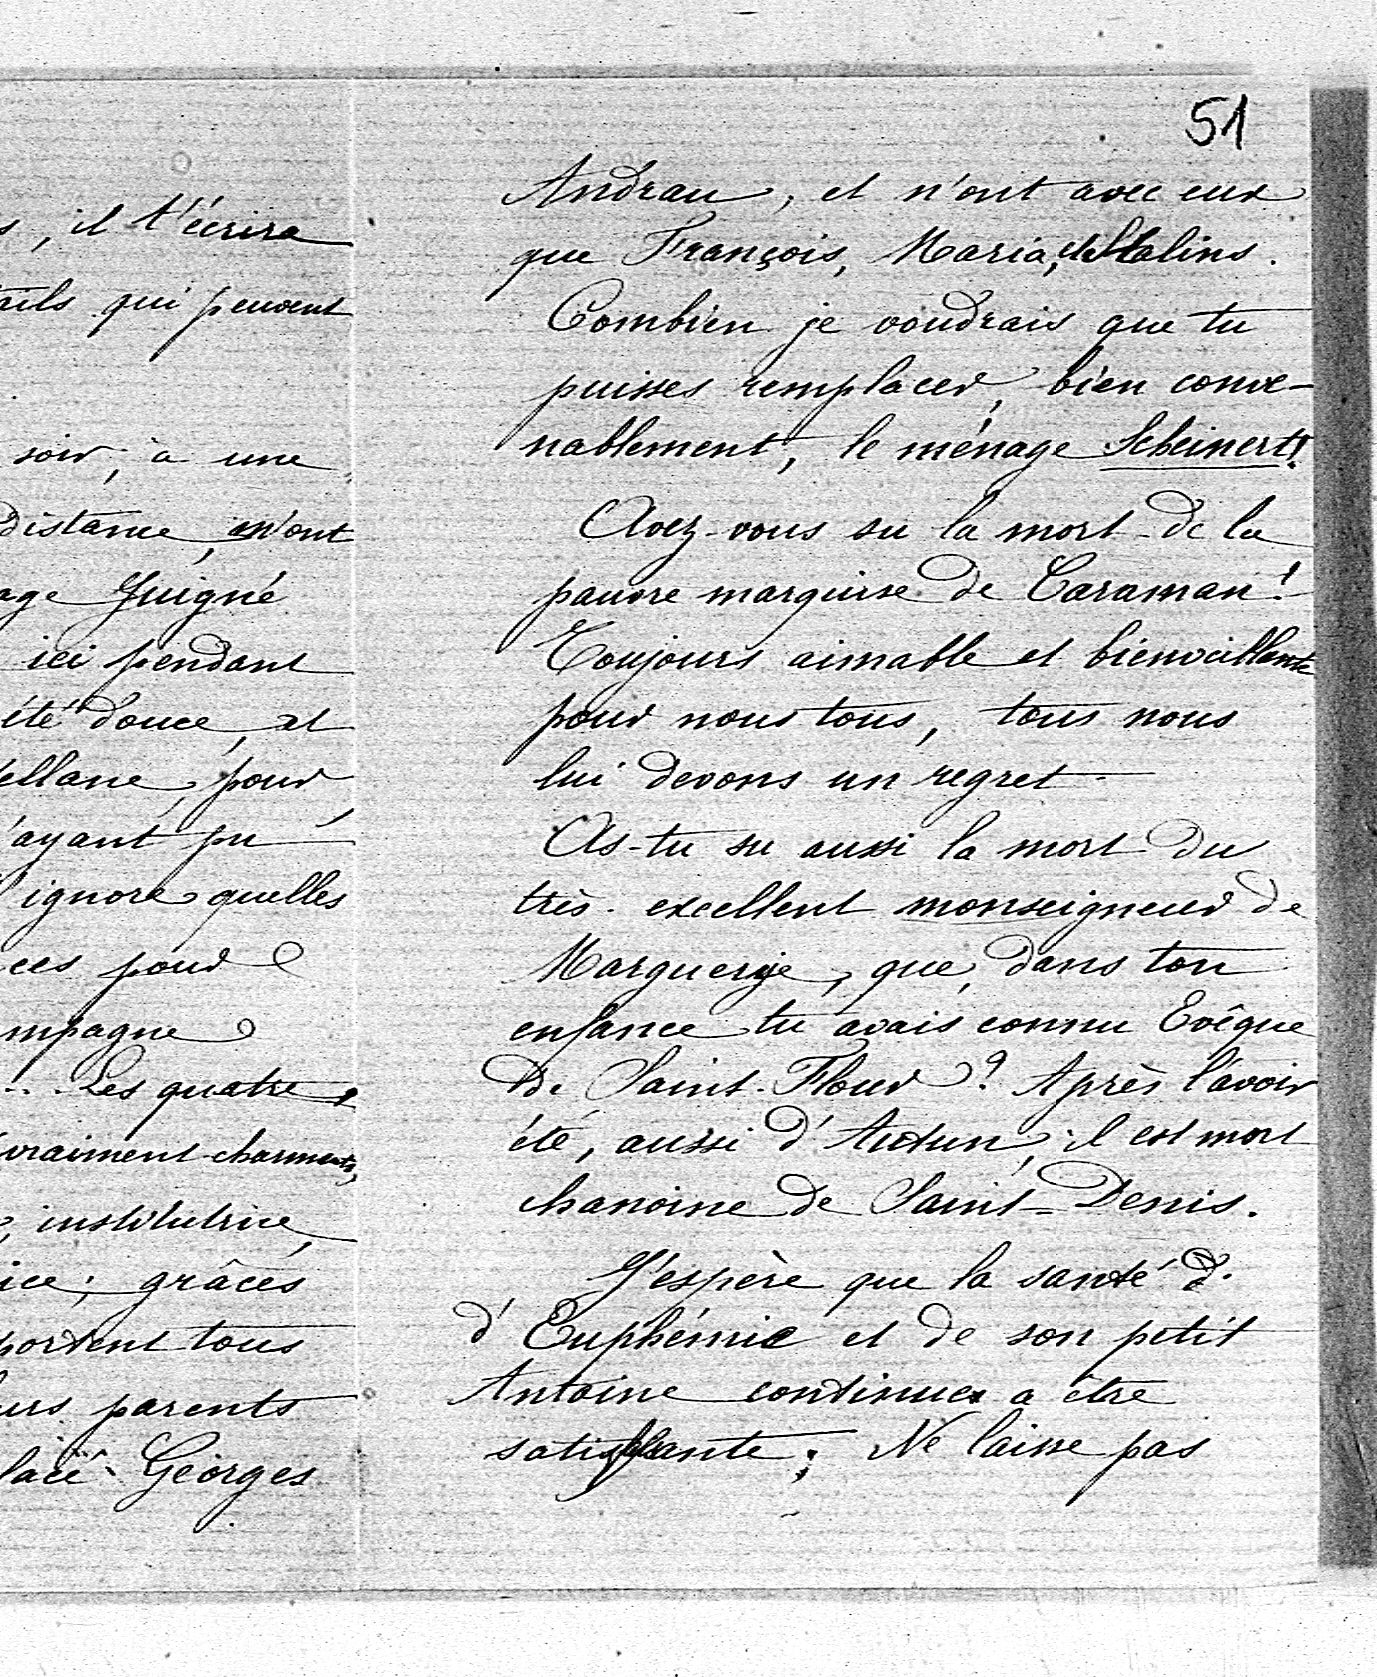 s, il t'écrira
ails qui peuvent
soir, à une
distance, m'ont
age Guigné
ici pendant
été douce, et
ellane, pour
'ayant pu
ignore quelles
ces pour
mpagne
... Les quatre
vraiment charmants,
institutrice,
ice; grâces
portent tous
urs parents
lacé Georges
51
Andrau, et n'ont avec eux
que François, Maria, et Malins.
Combien je voudrais que tu
puisses remplacer, bien conve-
nablement, le ménage Scheinert!
Avez-vous su la mort de la
pauvre marquise de Caraman!
Toujours aimable et bienveillante
pour nous tous, tous nous
lui devons un regret -
As-tu su aussi la mort du
très-excellent monseigneur de
Marguerye, que, dans ton
enfance tu avais connu Evêque
de Saint-Flour? Après l'avoir
été, aussi d'Autun, il est mort
chanoine de Saint-Denis.
J'espère que la santé
d'Euphémie et de son petit
Antoine continue a être
satisfaisante; Ne laisse pas